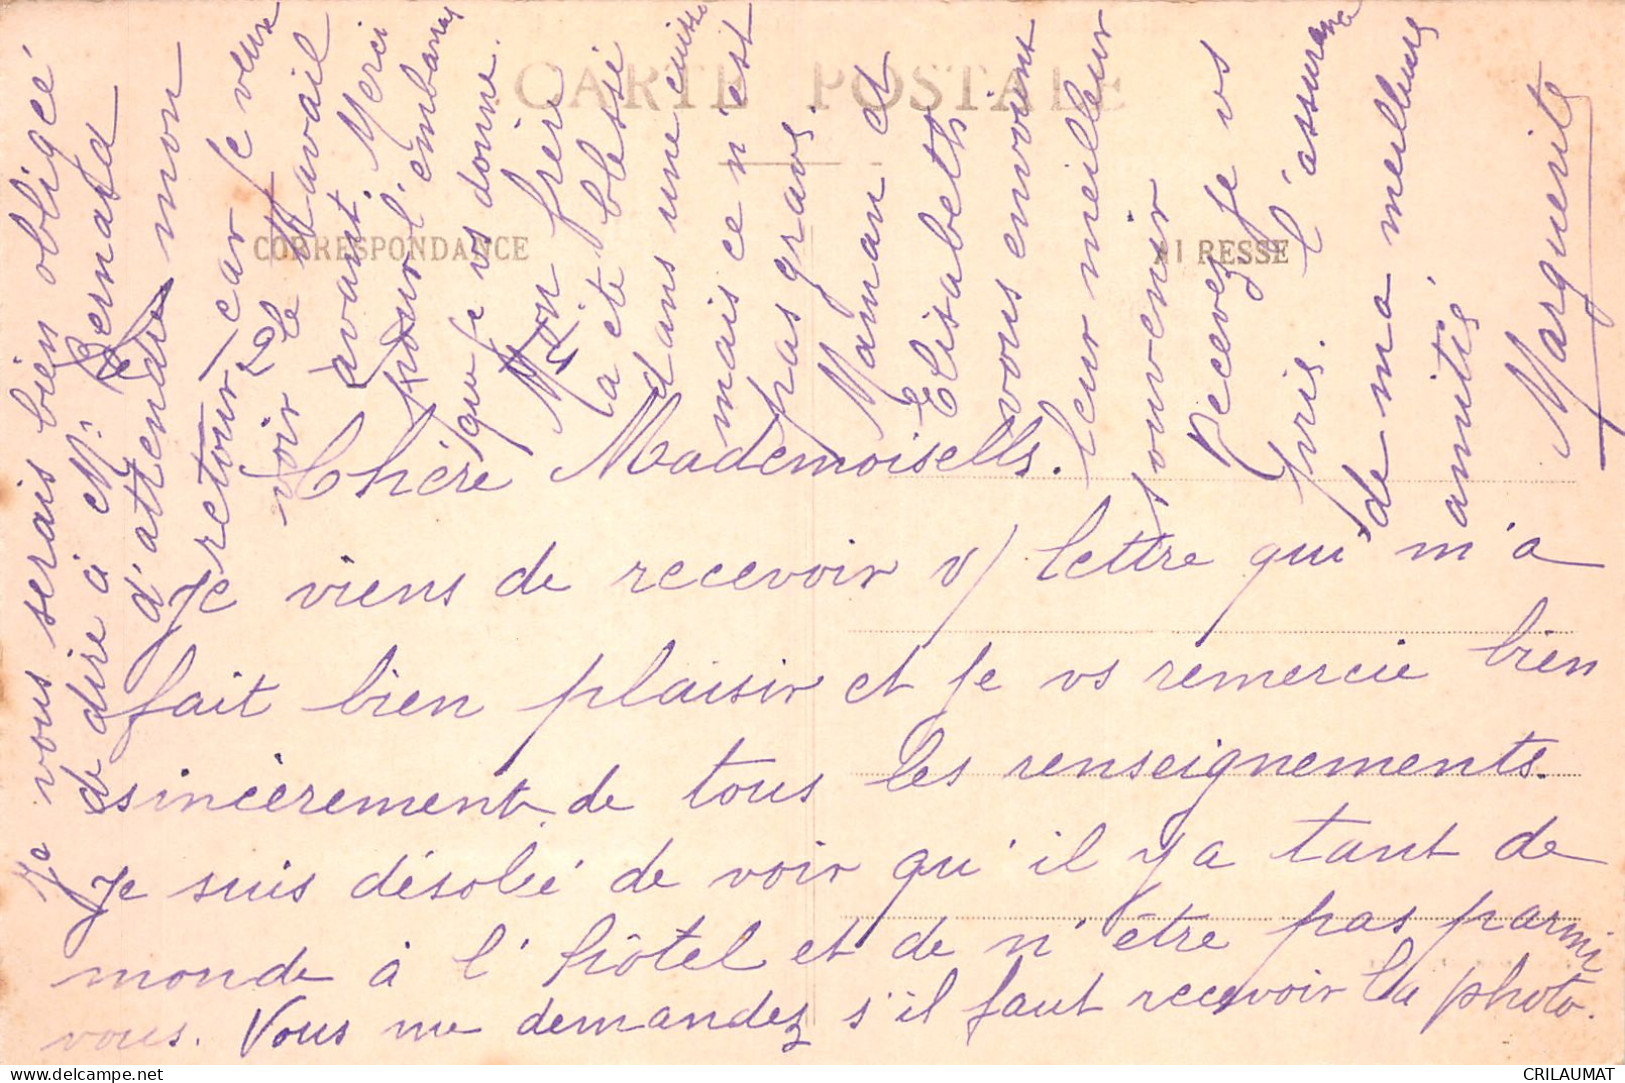 CARTE POSTALE
CORRESPONDANCE
ADRESSE
Chère Mademoiselle.
Je viens de recevoir v/ lettre qui m'a
fait bien plaisir et je vs remercie bien
sincèrement de tous les renseignements.
Je suis désolée de voir qu'il y a tant de
monde à l'hôtel et de n'être pas parmi
vous. Vous me demandez s'il faut recevoir la photo.
Je vous serais bien obligée
de dire à Mr Bernata
d'attendre mon
retour car je veux
voir le travail
avant. Merci
pour l'embarras
que je vs donne.
Mon frère
a été blessé
dans une cuisse
mais ce n'est
pas grave.
Maman et
Elisabeth
vous envoient
leur meilleur
souvenir
Recevez je vs
prie. l'assurance
de ma meilleure
amitié
Marguerite
CRILAUMAT